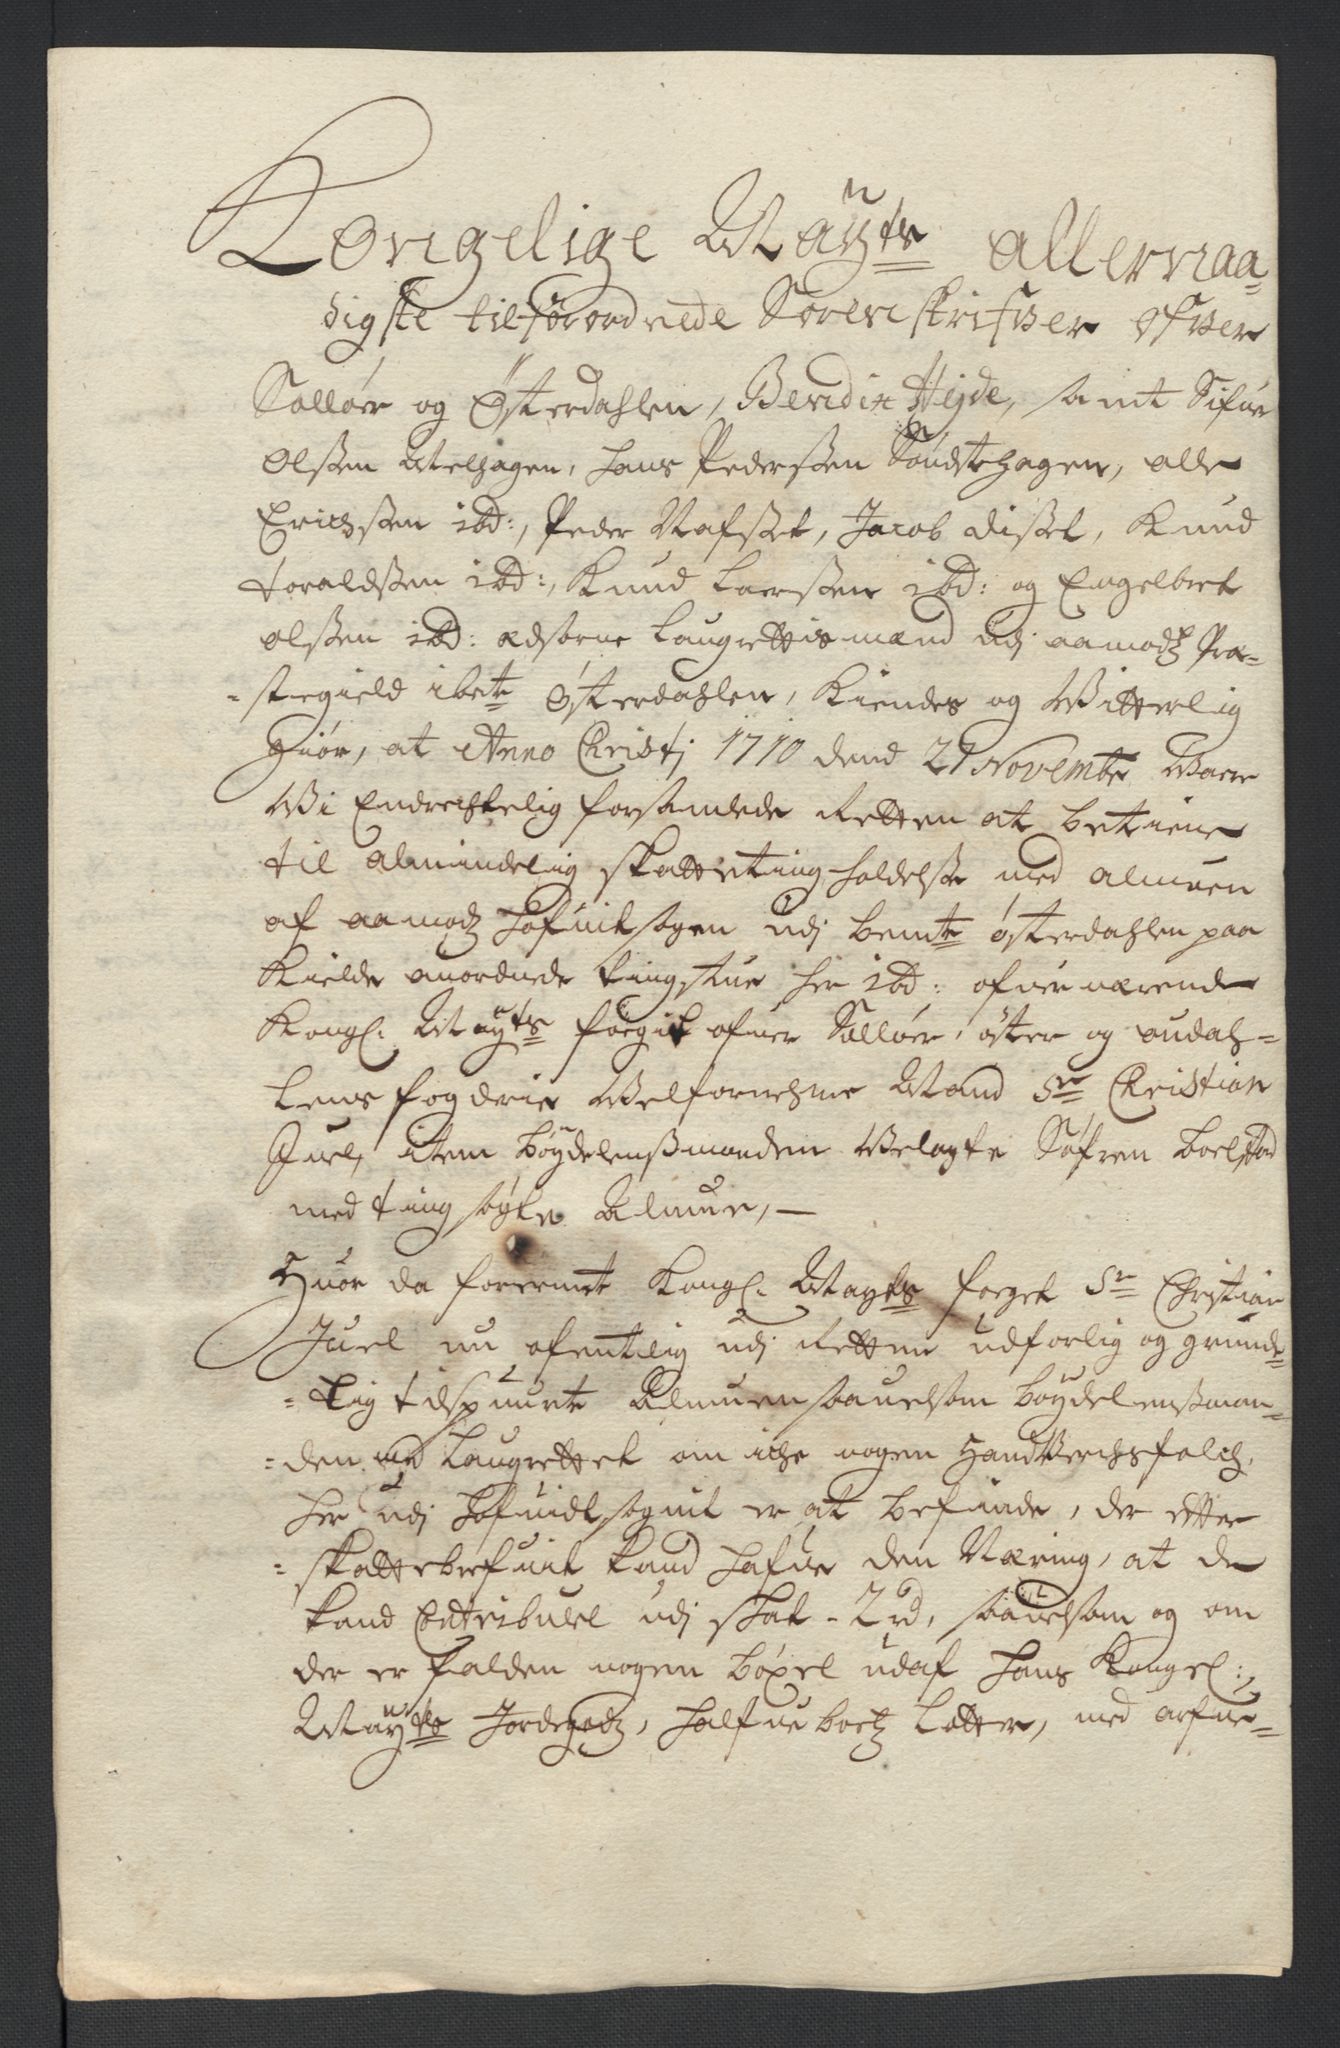 Kongelige Mayts allernaa-
digste tilforordnede Sorenskrifver ofver
Solløer og Østerdahlen, Bendix Hejde, samt Sifuer
Olssen Melhagen, Hans Pederssen Sundtehagen, Olle
Erichssen ibd:, Peder Nafset, Jacob Disset, Knud
Toraldssen ibd:, Knud Larssen ibd: og Engelbret
Olssen ibd: edsorne Laugrettismænd udj Aamodtz Præ-
-stegield i bete Østerdahlen, Kiendes og Witterlig
giør, at Anno Christj 1710 dend 27 November Waare
Wi Endrechtelig forsamlede Retten at betiene
til almindelig skatteting holdelsse med almuen
af Aamodtz Hofuitsogen udj bemte Østerdahlen paa
Kielde anordnede tingstue her ibd: ofuerværende
Kongl. Mayts foegit ofuer Solløer, Øster og Oudah-
lens fogderie Welfornehme Mand Sr Christian
Juel, item bøydelenssmanden Welagte Søfren Boelstad
med tingsøgte Almue,—
Huor da forermte Kongl. Mayts foeget Sr Christian
Juel nu ofentlig udj Retten udførlig og grunde-
-lig tilspurte Almuen saauelsom bøydelenssman-
-den og Laugrettet om iche nogen Handtverchsfolch,
her udj Hofuidtsognit er at befinde, der efter
-skattebrefuit kand hafue den Næring, at de
kand Contribuere udj skat - 2 rd, saauelsom og om
der er falden nogen bøxel udaf Hans Kongel:
Mayts Jordegodtz, halfue boets Lotter, med arfue-